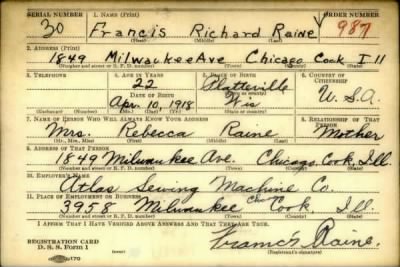 SERIAL NUMBER 1. NAME (Print) ORDER NUMBER
30 Francis Richard Raine 987
(First) (Middle) (Last)
2. ADDRESS (Print)
1849 Milwaukee Ave Chicago Cook Ill
(Number and street or R. F. D. number) (Town) (County) (State)
3. TELEPHONE 4. AGE IN YEARS 5. PLACE OF BIRTH 6. COUNTRY OF CITIZENSHIP
22 Platteville
DATE OF BIRTH (Town or county)
Apr. 10, 1918 Wis U.S.A.
(Exchange) (No.) (Mo.) (Day) (Yr.) (State or country)
7. NAME OF PERSON WHO WILL ALWAYS KNOW YOUR ADDRESS 8. RELATIONSHIP OF THAT PERSON
Mrs. Rebecca Raine Mother
(Mr., Mrs., Miss) (First) (Middle) (Last)
9. ADDRESS OF THAT PERSON
1849 Milwaukee Ave. Chicago, Cook, Ill.
(Number and street or R. F. D. number) (Town) (County) (State)
10. EMPLOYER'S NAME
Atlas Sewing Machine Co.
11. PLACE OF EMPLOYMENT OR BUSINESS
3958 Milwaukee Chgo Cook, Ill.
(Number and street or R. F. D. number) (Town) (County) (State)
I AFFIRM THAT I HAVE VERIFIED ABOVE ANSWERS AND THAT THEY ARE TRUE.
REGISTRATION CARD
D. S. S. Form 1 Francis Raine.
(Registrant's signature)